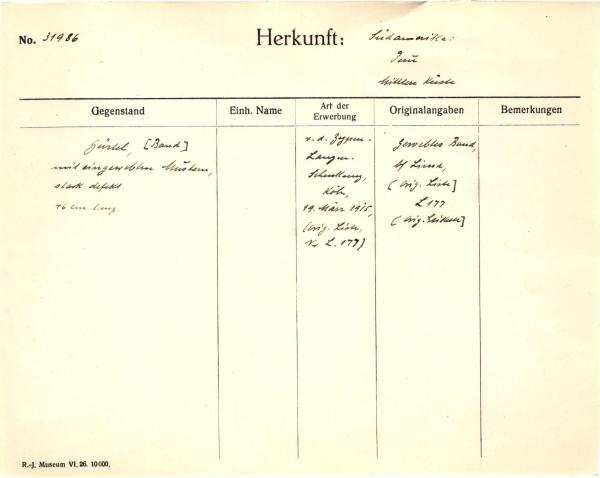 No. 31986
Herkunft: Südamerika:
Peru
Mittlere Küste
Gegenstand
Einh. Name
Art der Erwerbung
Originalangaben
Bemerkungen
Gürtel, [Band]
mit eingewebten Mustern,
stark defekt.
76 cm lang
v. d. Zypen-
Langen-
Schenkung,
Köln,
19. März 1915,
(orig. Liste,
Nr L. 177]
Gewebtes Band,
bf Lima,
(orig. Liste]
L 177
(orig. Etikett]
R.-J. Museum VI. 26. 10000.